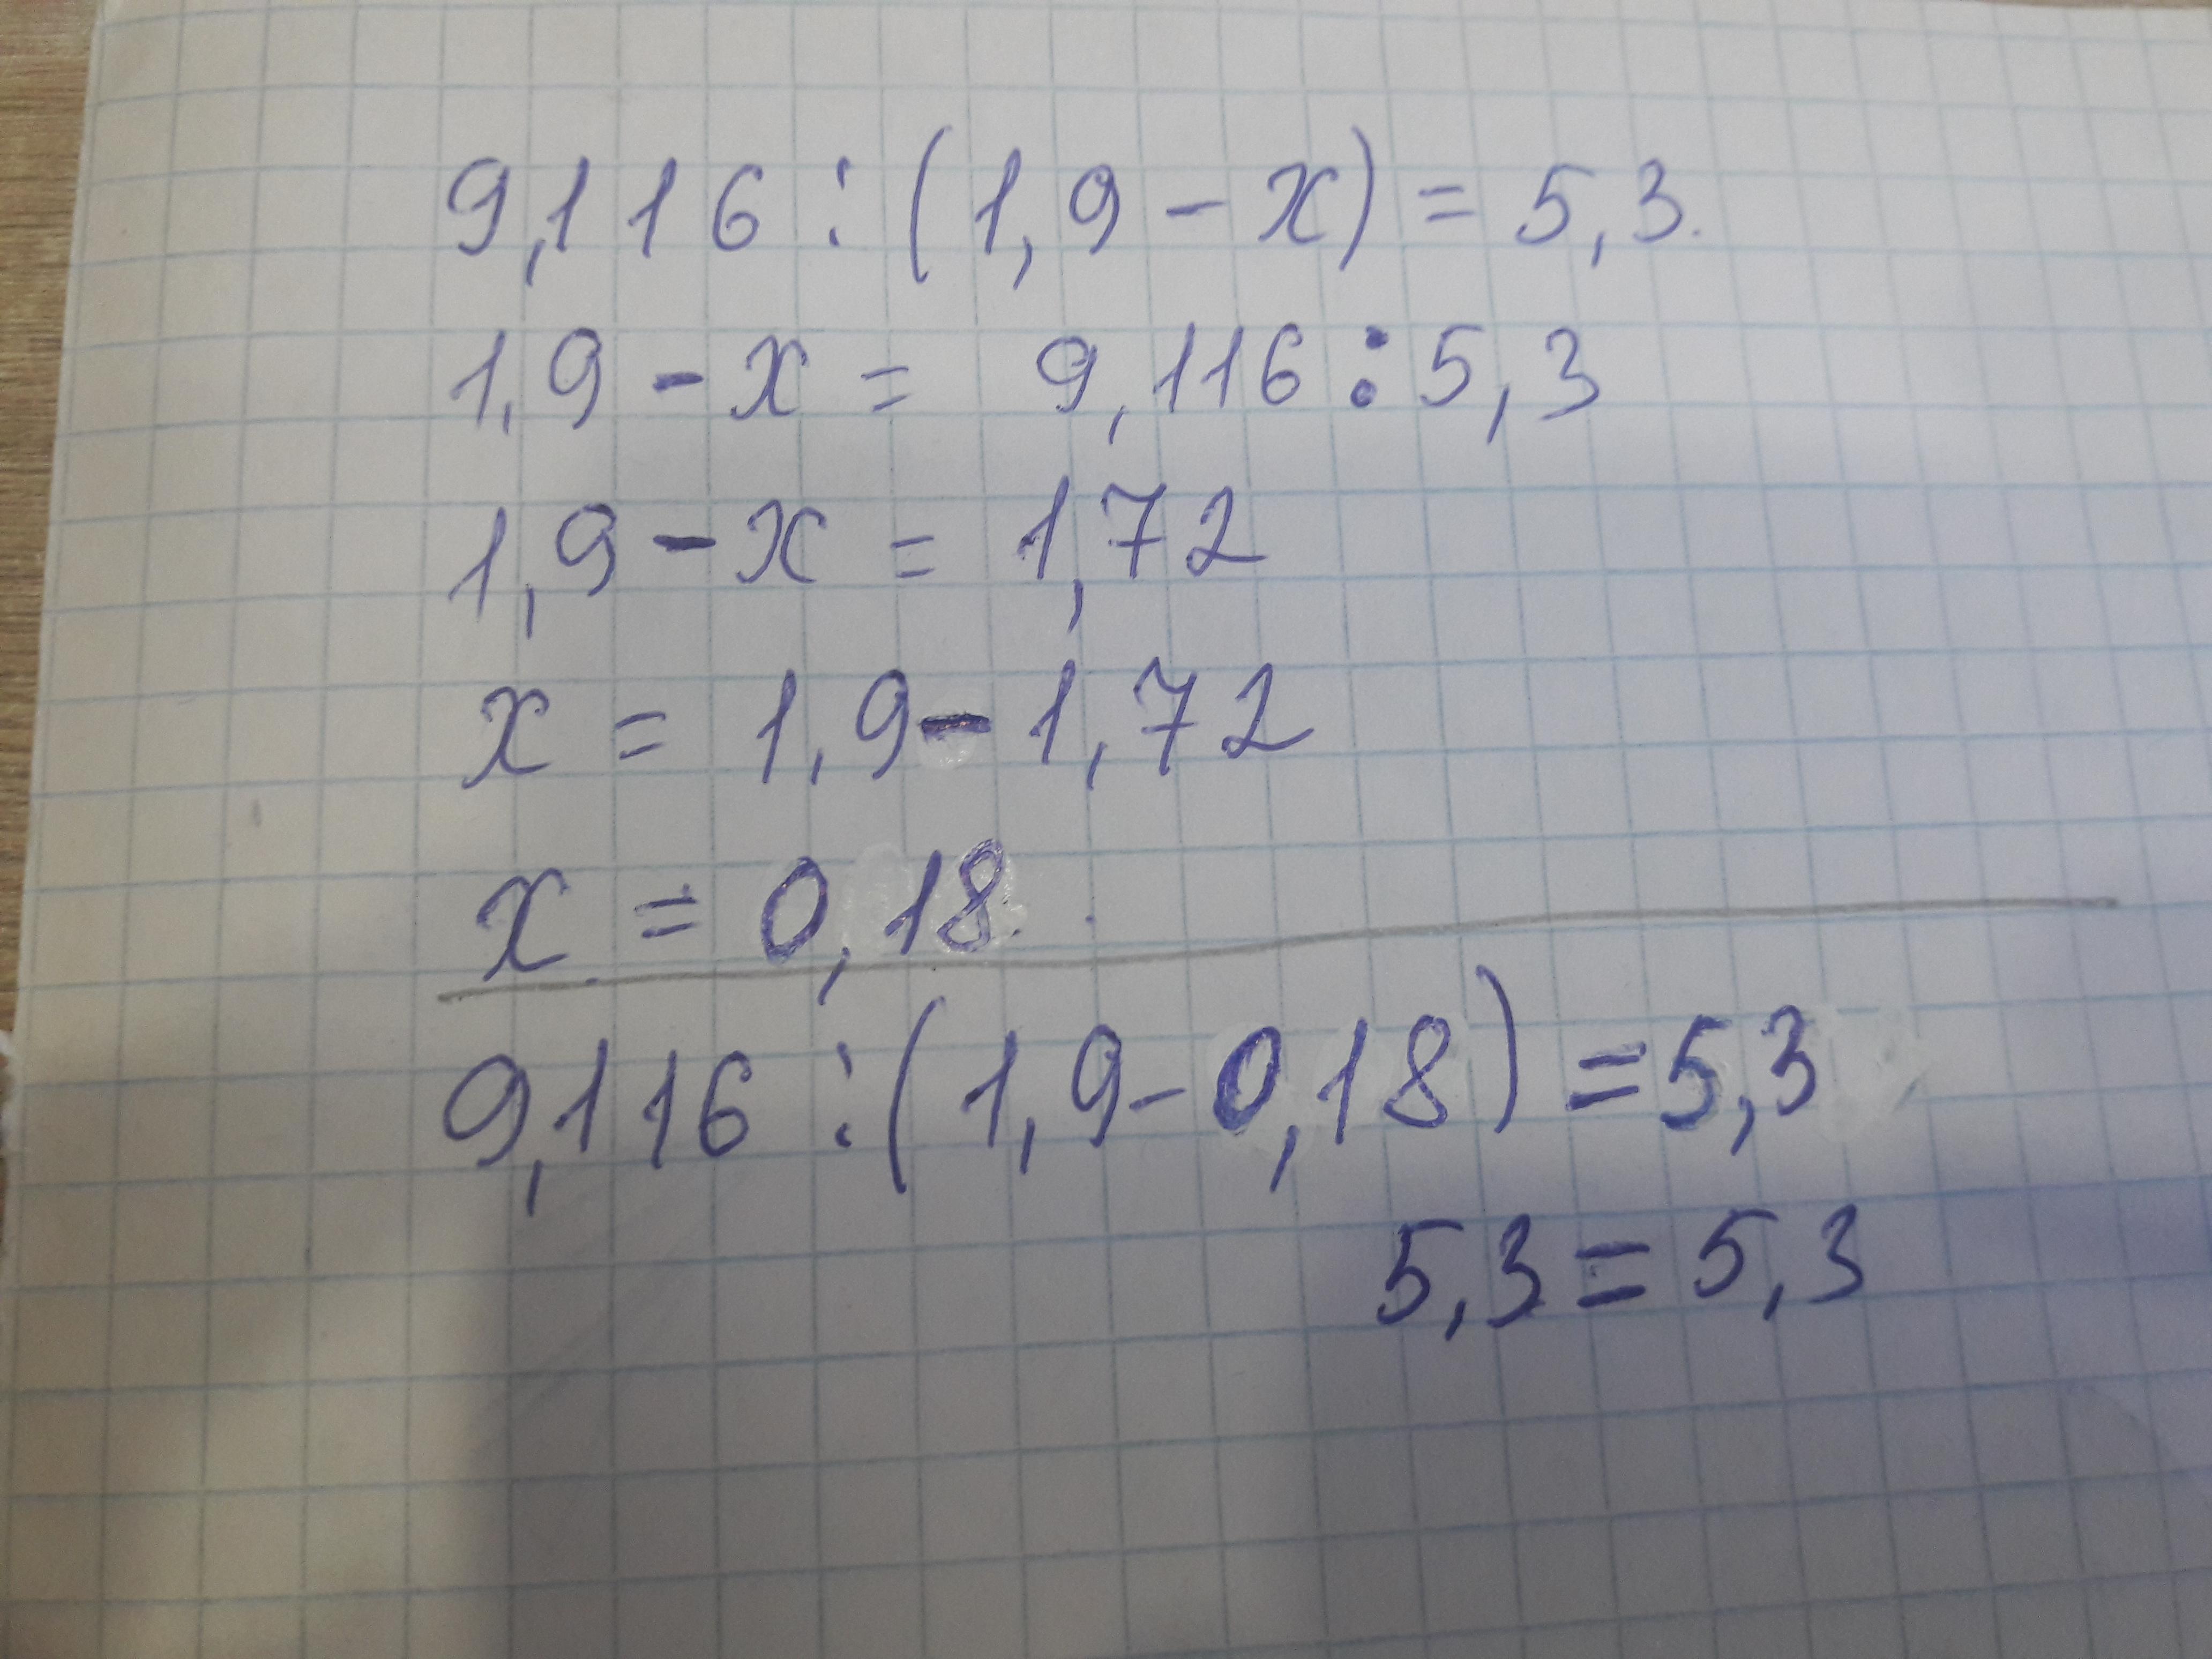 9,116 : (1,9 - x) = 5,3.
1,9 - x = 9,116 : 5,3
1,9 - x = 1,72
x = 1,9 - 1,72
x = 0,18.
9,116 : (1,9 - 0,18) = 5,3
5,3 = 5,3